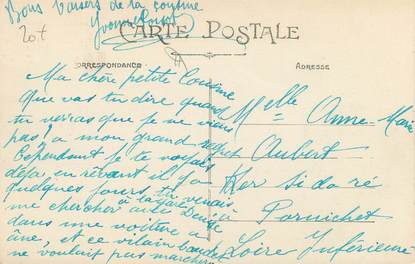 Bons baisers de la cousine
Yvonne
20f
CARTE POSTALE
CORRESPONDANCE
ADRESSE
Ma chère petite Cousine
Que vas tu dire quand
tu verras que je ne viens
pas, a mon grand regret
Cependant je te voyais
déjà en rêvant il y a
quelques jours tu venais
me chercher à la gare avec Denise
dans une voiture à
âne, et ce vilain
ne voulait pas marcher
Melle Anne-Marie
Aubert
Ker si do ré
Pornichet
Loire Inférieure